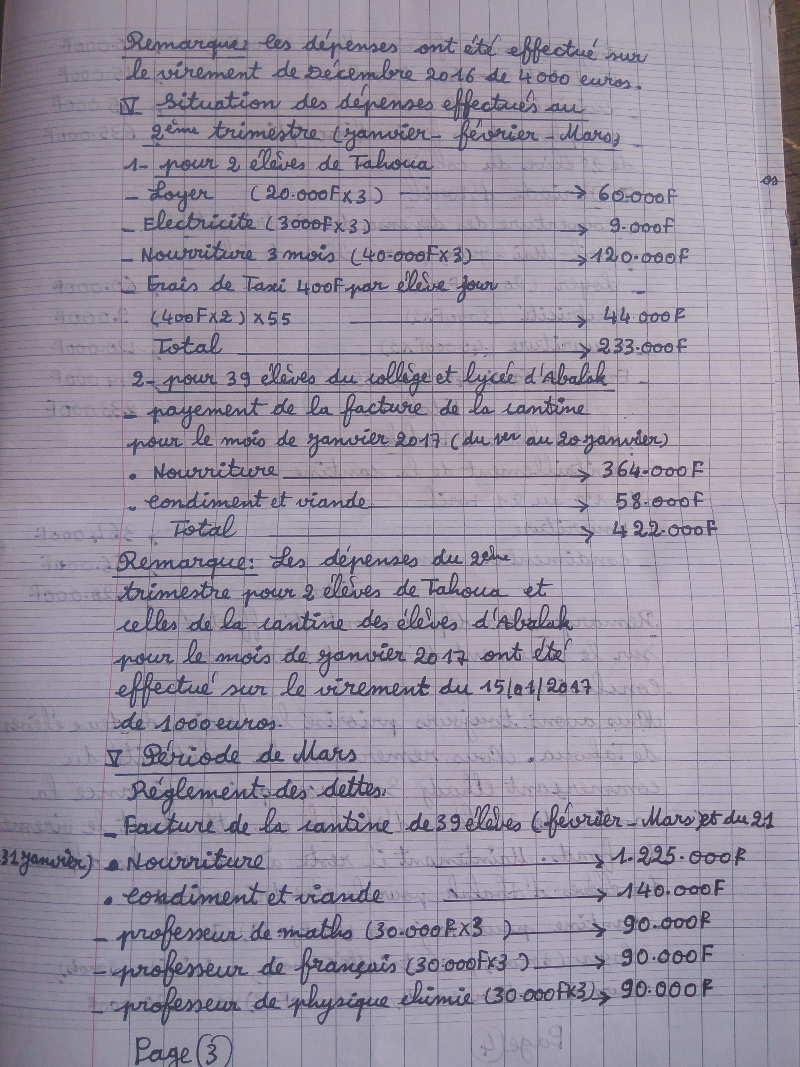 Remarque: les dépenses ont été effectué sur
le virement de Décembre 2016 de 4000 euros.
IV Situation des dépenses effectués au
2ème trimestre (janvier - février - Mars)
1- pour 2 élèves de Tahoua
- Loyer (20.000F x 3) → 60.000F
- Electricité (3000F x 3) → 9.000F
- Nourriture 3 mois (40.000F x 3) → 120.000F
- Frais de Taxi 400F par élève jour
(400F x 2) x 55 → 44.000F
Total → 233.000F
2- pour 39 élèves du collège et lycée d'Abalak
- payement de la facture de la cantine
pour le mois de janvier 2017 (du 1er au 20 janvier)
• Nourriture → 364.000F
• condiment et viande → 58.000F
Total → 422.000F
Remarque: Les dépenses du 2ème
trimestre pour 2 élèves de Tahoua et
celles de la cantine des élèves d'Abalak
pour le mois de janvier 2017 ont été
effectué sur le virement du 15/01/2017
de 1000 euros.
V Période de Mars
Réglement des dettes.
- Facture de la cantine de 39 élèves (février - Mars et du 21
31 janvier) • Nourriture → 1.225.000F
• condiment et viande → 140.000F
- professeur de maths (30.000F x 3) → 90.000F
- professeur de français (30.000F x 3) → 90.000F
- professeur de physique chimie (30.000F x 3) → 90.000F
Page (3)